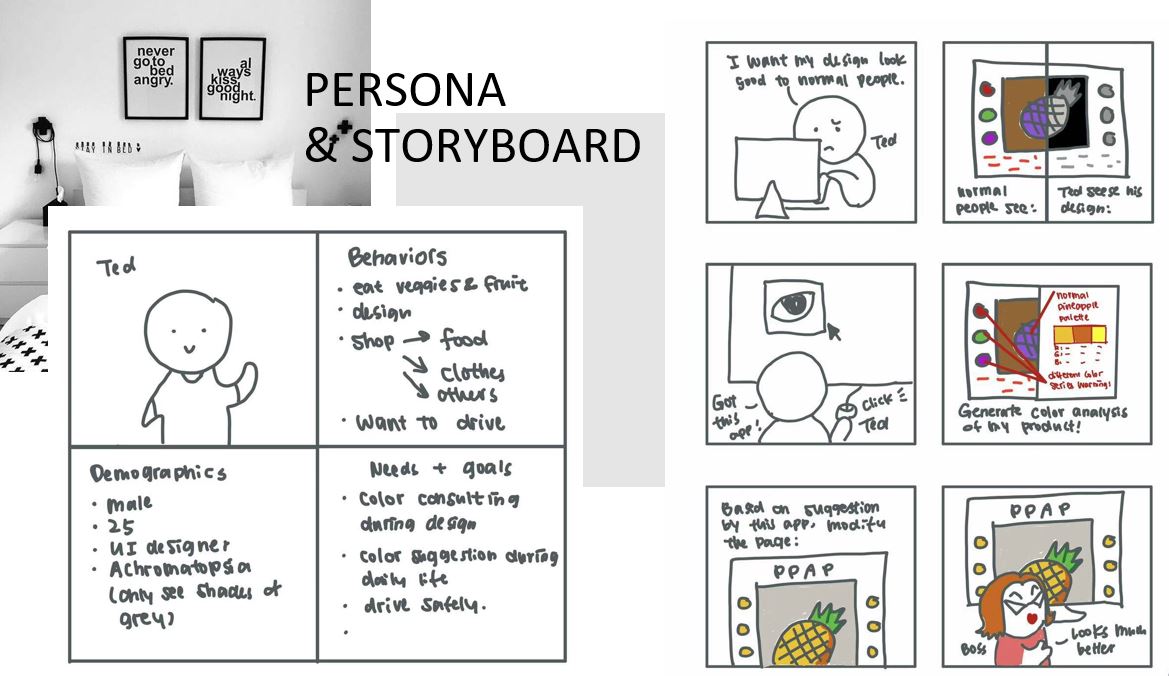 never
go to
bed
angry.
al
ways
kiss
good
night.
PERSONA
& STORYBOARD
Ted
Behaviors
• eat veggies & fruit
• design
• shop → food
clothes
others
• want to drive
Demographics
• male
• 25
• UI designer
• Achromatopsia
(only see shades of
grey)
Needs + goals
• Color consulting
during design
• color suggestion during
daily life
• drive safely.
•
I want my design look
good to normal people.
Ted
normal
people see:
Ted seese his
design:
Got
this
app!
Click
Ted
normal
pineapple
palette
R:
G:
B:
different color
series warnings
Generate color analysis
of my product!
Based on suggestion
by this app, modify
the page:
PPAP
PPAP
Boss
Looks much
better